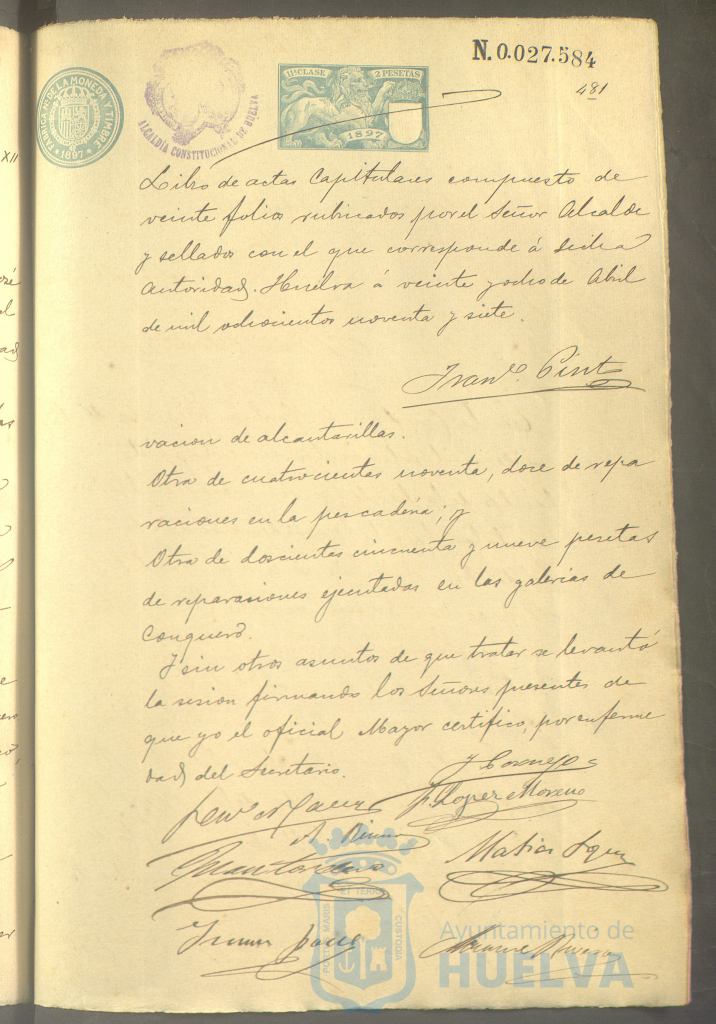 N. 0.027.584
481
11ª CLASE 2 PESETAS
1897
FABRICA NAL DE LA MONEDA Y TIMBRE
* 1897 *
ALCALDÍA CONSTITUCIONAL DE HUELVA
XII
Libro de actas Capitulares compuesto de
veinte folios rubricados por el Señor Alcalde
y sellados con el que corresponde á dicha
autoridad. Huelva á veinte y ocho de Abril
de mil ochocientos noventa y siete.
Franco. Pinto
vacion de alcantarillas.
Otra de cuatrocientas noventa, doce de repa
raciones en la pescadería; y
Otra de doscientas cincuenta y nueve pesetas
de reparaciones ejecutadas en las galerias de
Conquero.
Y sin otros asuntos de que tratar se levantó
la sesion firmando los Señores presentes de
que yo el oficial Mayor certifico, por enferme
dad del Secretario.
J Cornejo
F. Lopez Moreno
Matias Lopez
PORTUS MARIS ET TERRE CUSTODIA
Ayuntamiento de
HUELVA